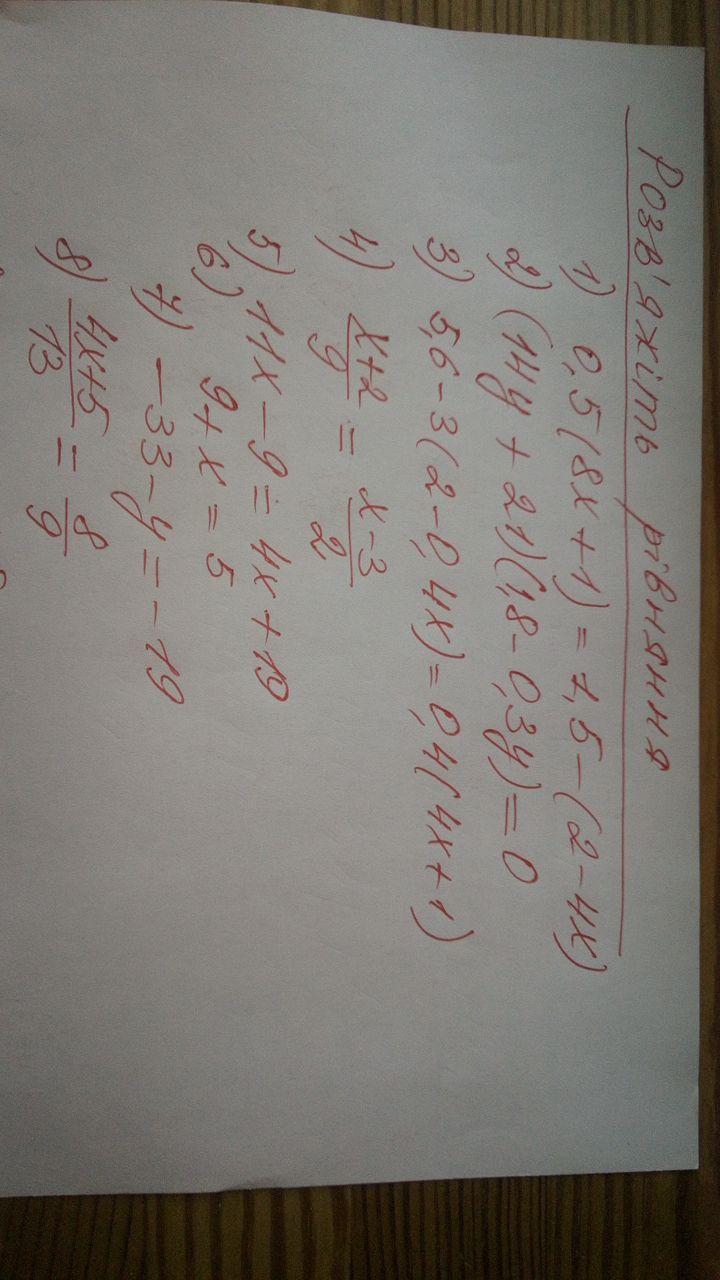 Розв'яжіть рівняння
1) 0,5(8x+1)=7,5-(2-4x)
2) (14y+21)(1,8-0,3y)=0
3) 5,6-3(2-0,4x)=0,4(4x+1)
4) x+2/9 = x-3/2
5) 11x-9=4x+19
6) 9+x=5
7) -33-y=-19
8) 4x+5/13 = 8/9